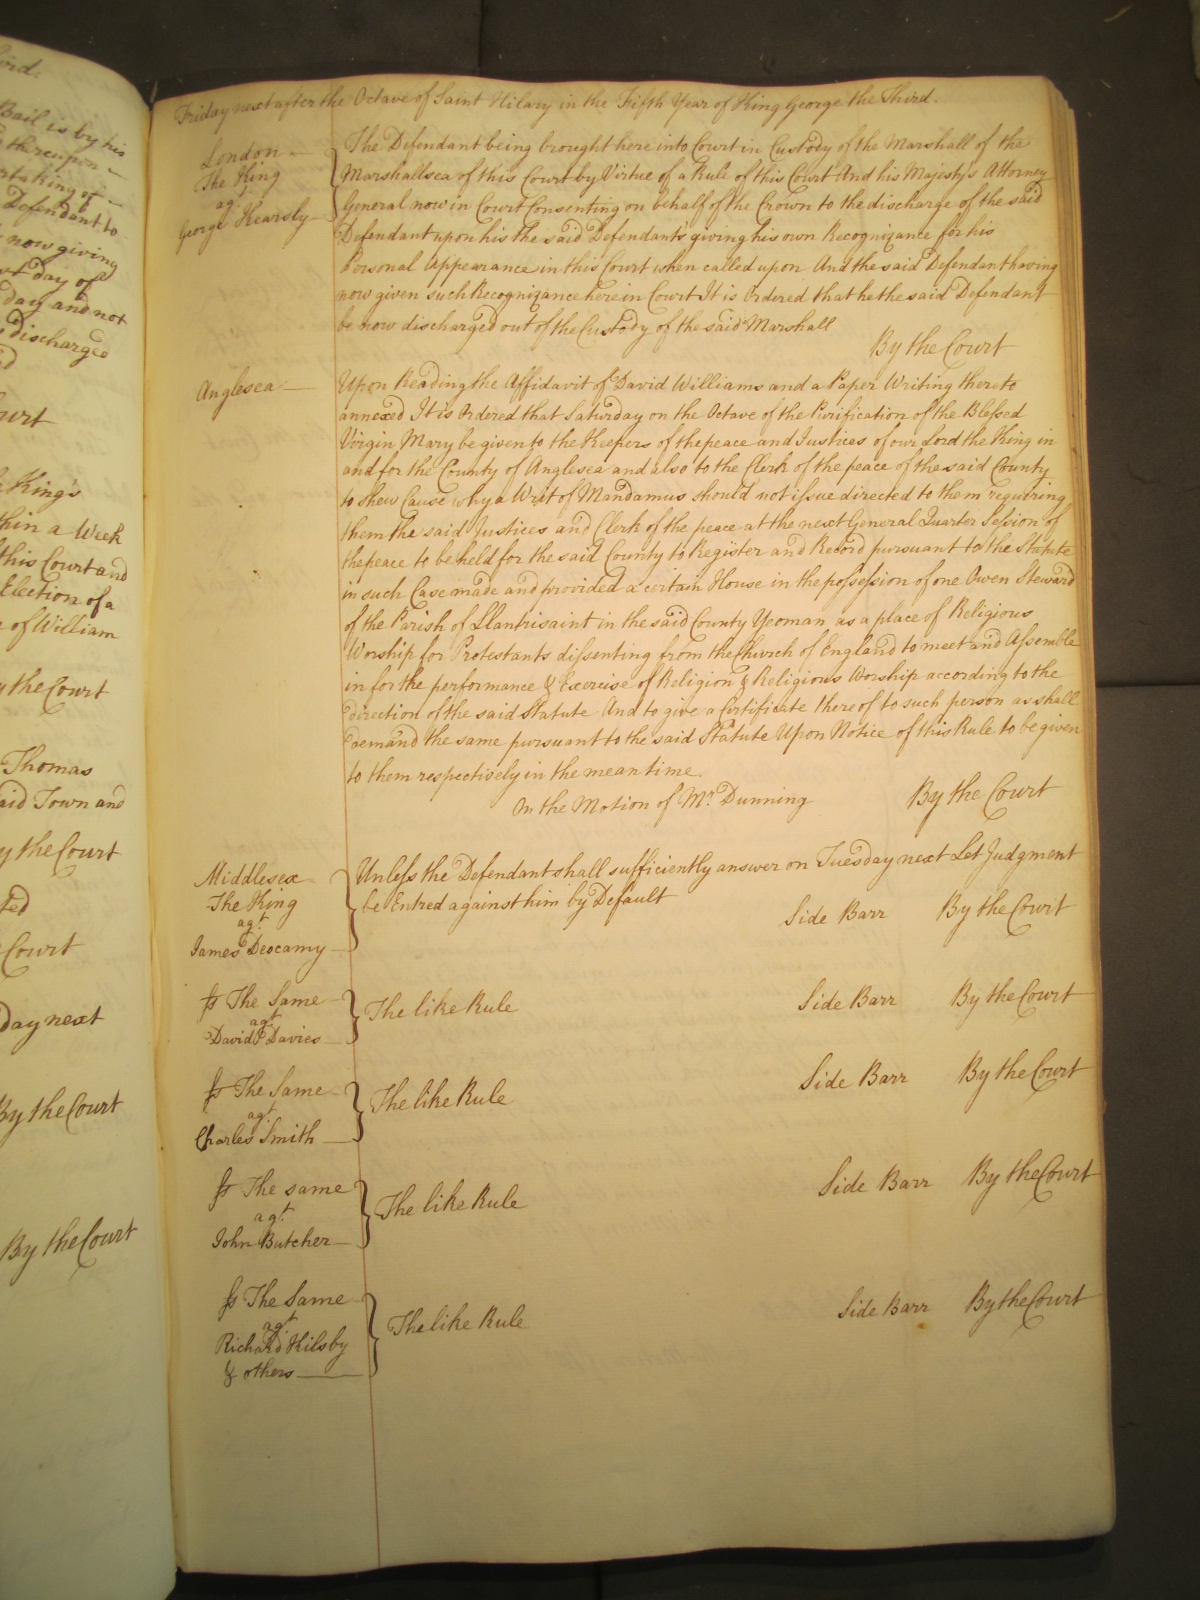 ord.
Bail is by his
thereupon
rtaking of
Defendant to
now giving
day of
day and not
discharged
Court
King's
thin a Week
this Court and
Election of a
of William
y the Court
Thomas
aid Town and
y the Court
Court
day next
By the Court
By the Court
Friday next after the Octave of Saint Hilary in the Fifth Year of King George the Third.
London
The King
agt.
George Kearsly
The Defendant being brought here into Court in Custody of the Marshall of the
Marshallsea of this Court by Virtue of a Rule of this Court And his Majesty's Attorney
General now in Court Consenting on behalf of the Crown to the discharge of the said
Defendant upon his the said Defendants giving his own Recognizance for his
Personal Appearance in this Court when called upon And the said Defendant having
now given such Recognizance here in Court It is Ordered that he the said Defendant
be now discharged out of the Custody of the said Marshall
By the Court
Anglesea
Upon Reading the Affidavit of David Williams and a Paper Writing thereto
annexed It is Ordered that Saturday on the Octave of the Purification of the Blessed
Virgin Mary be given to the Keepers of the peace and Justices of our Lord the King in
and for the County of Anglesea and also to the Clerk of the peace of the said County
to shew Cause why a Writ of Mandamus should not issue directed to them requiring
them the said Justices and Clerk of the peace at the next General Quarter Session of
the peace to be held for the said County to Register and Record pursuant to the Statute
in such Case made and provided a certain House in the possession of one Owen Steward
of the Parish of Llantrisaint in the said County Yeoman as a place of Religious
Worship for Protestants dissenting from the Church of England to meet and Assemble
in for the performance & Exercise of Religion & Religious Worship according to the
direction of the said Statute And to give a Certificate thereof to such person as shall
demand the same pursuant to the said Statute Upon Notice of this Rule to be given
to them respectively in the mean time.
On the Motion of Mr. Dunning By the Court
Middlesex
The King
agt.
James Deocamy
Unless the Defendant shall sufficiently answer on Tuesday next Let Judgment
be Entred against him by Default
Side Barr By the Court
Ss The Same
agt
David Davies
The like Rule Side Barr By the Court
Ss The Same
agt
Charles Smith
The like Rule Side Barr By the Court
Ss The same
agt.
John Butcher
The like Rule Side Barr By the Court
Ss The Same
agt.
Richard Hilsby
& others
The like Rule Side Barr By the Court